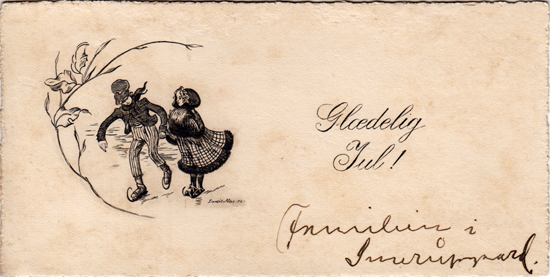 Glædelig
Jul!
Familien i